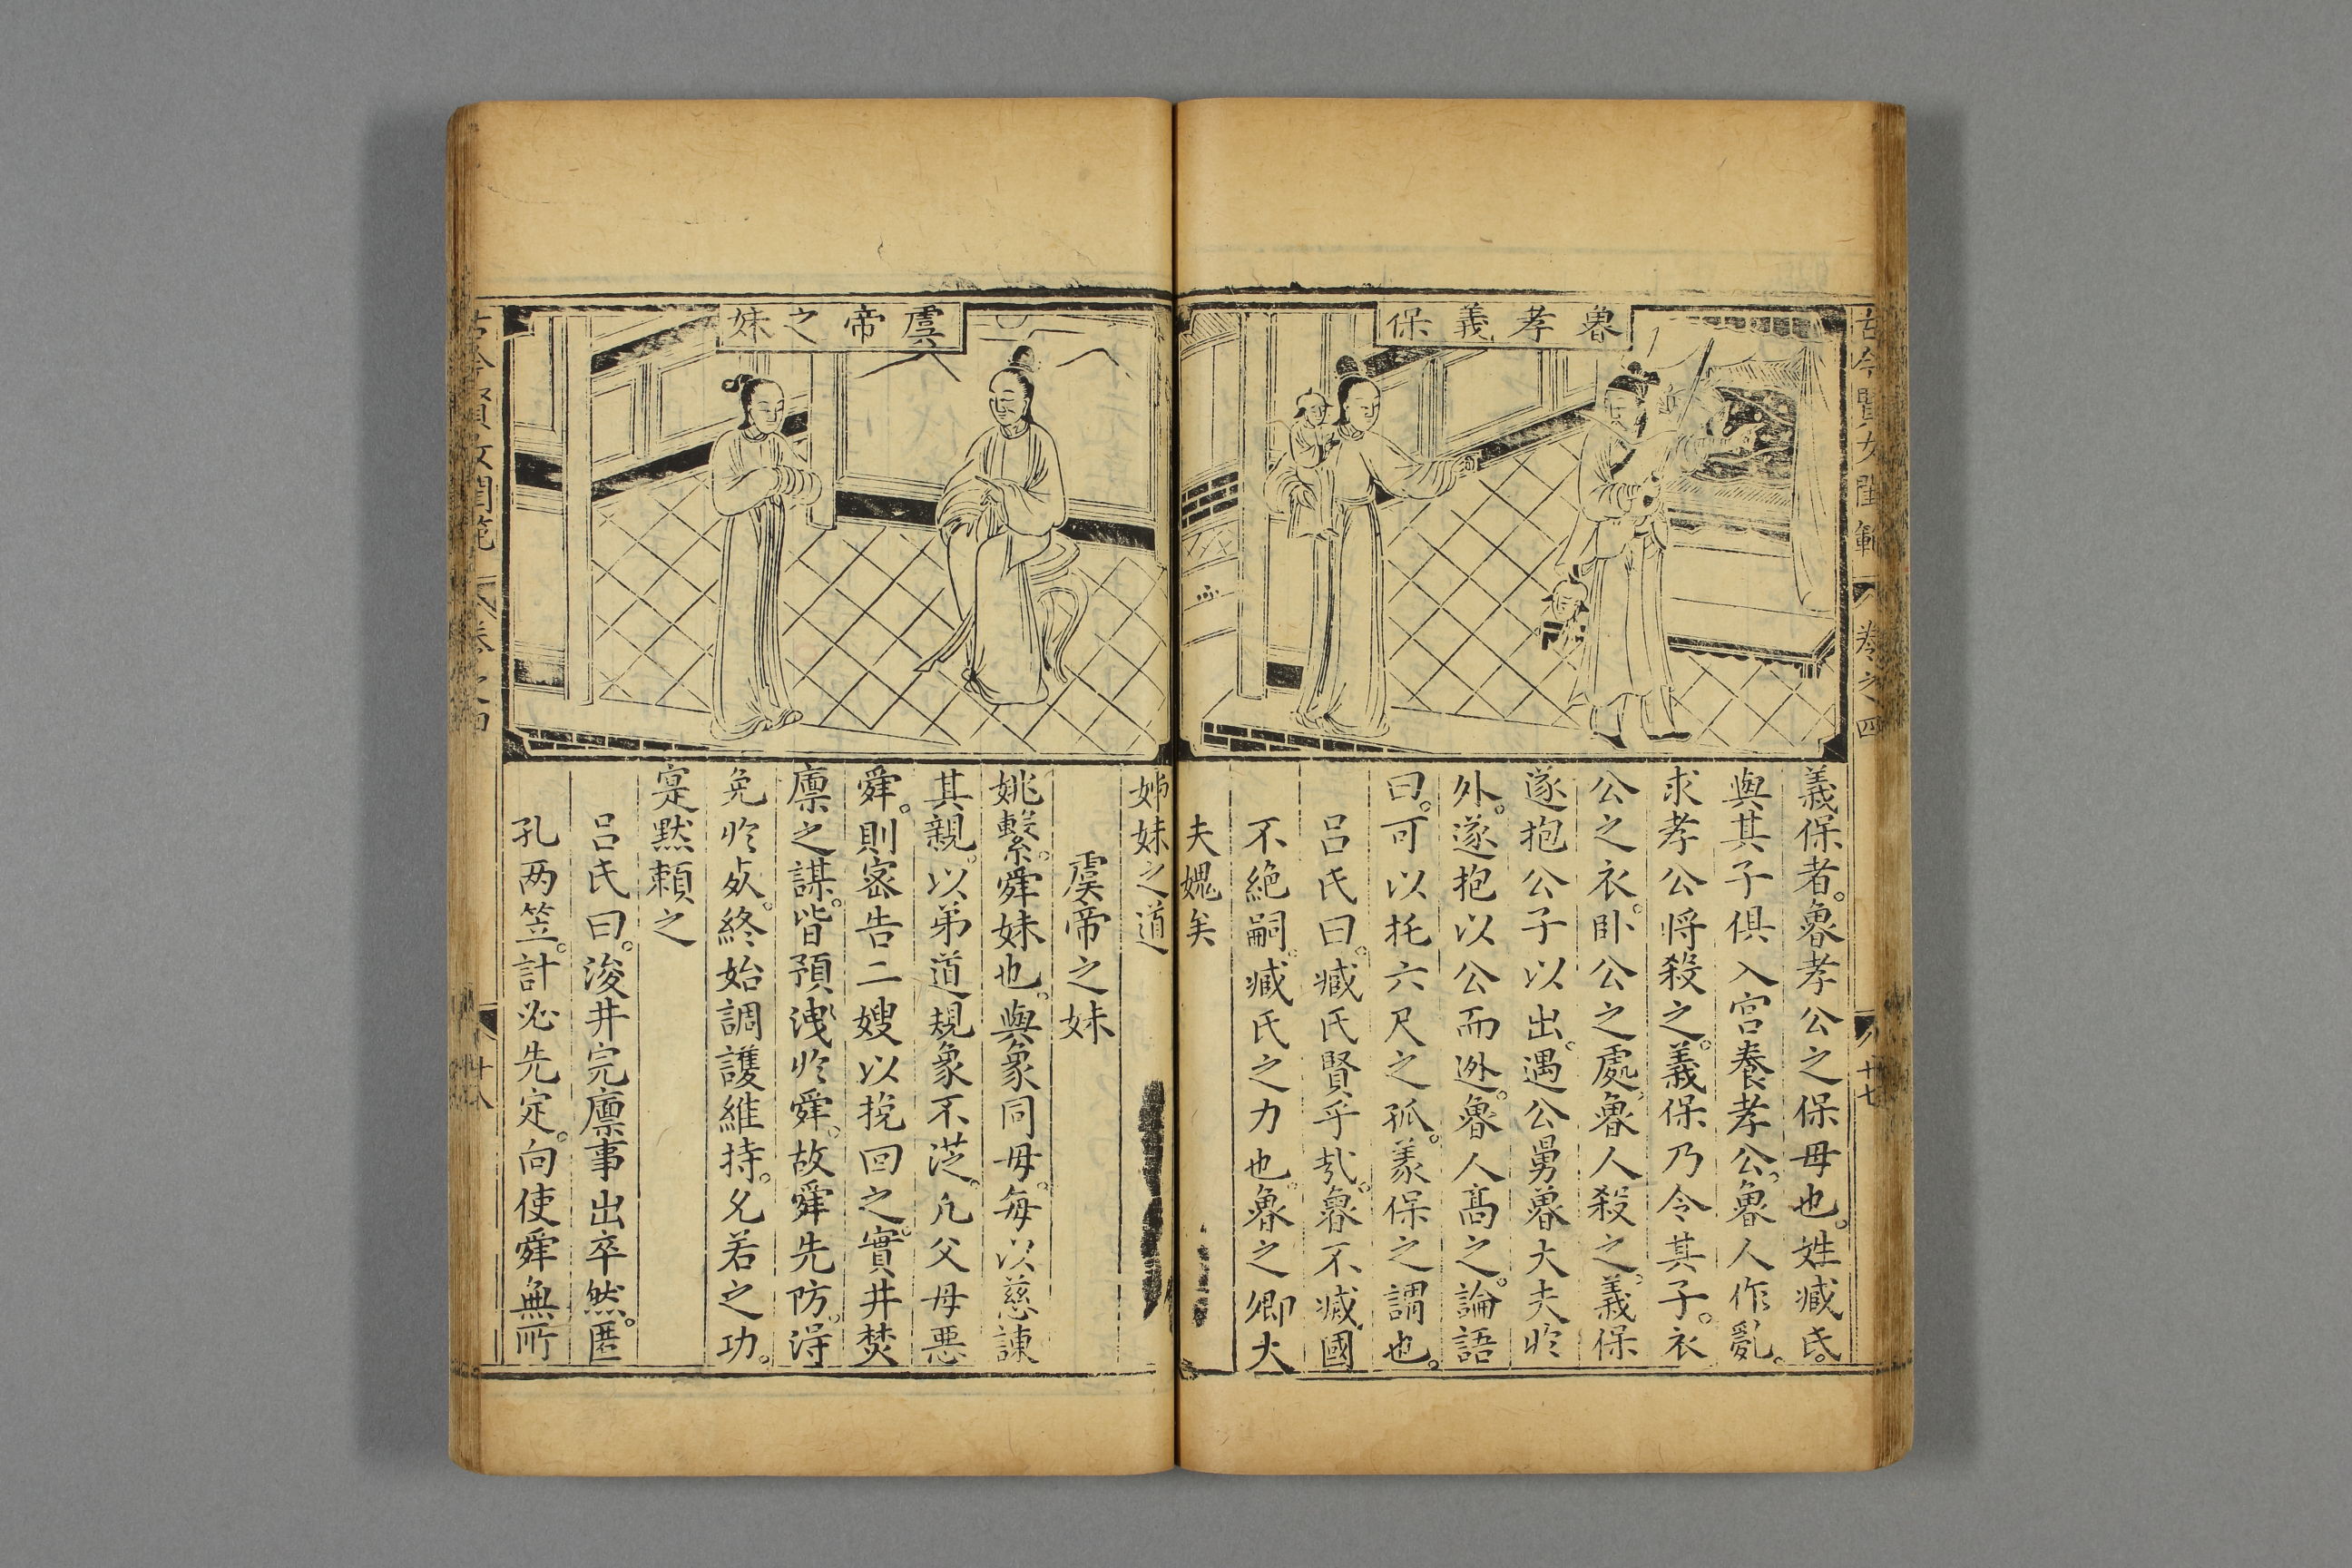 古今賢女閨範
卷之四
十七
魯孝義保
義保者。魯孝公之保母也。姓臧氏。
與其子俱入宮養孝公。魯人作亂。
求孝公将殺之。義保乃令其子。衣
公之衣。卧公之處。魯人殺之。義保
遂抱公子以出。遇公舅魯大夫於
外。遂抱以公而逃。魯人高之。論語
曰。可以托六尺之孤。義保之謂也。
呂氏曰。臧氏賢乎哉。魯不滅國
不絶嗣。臧氏之力也。魯之卿大
夫媿矣
虞帝之妹
姊妹之道
虞帝之妹
姚繫。舜妹也。與象同母。每以慈諌
其親。以弟道規象不從。凡父母惡
舜。則密告二嫂以挽回之。實井焚
廪之謀。皆預洩於舜。故舜先防。淂
免於死。終始調護維持。兄若之功。
寔黙頼之
呂氏曰。浚井完廪事出卒然。匿
孔两笠。計必先定。向使舜無所
古今賢女閨範
卷之四
十八